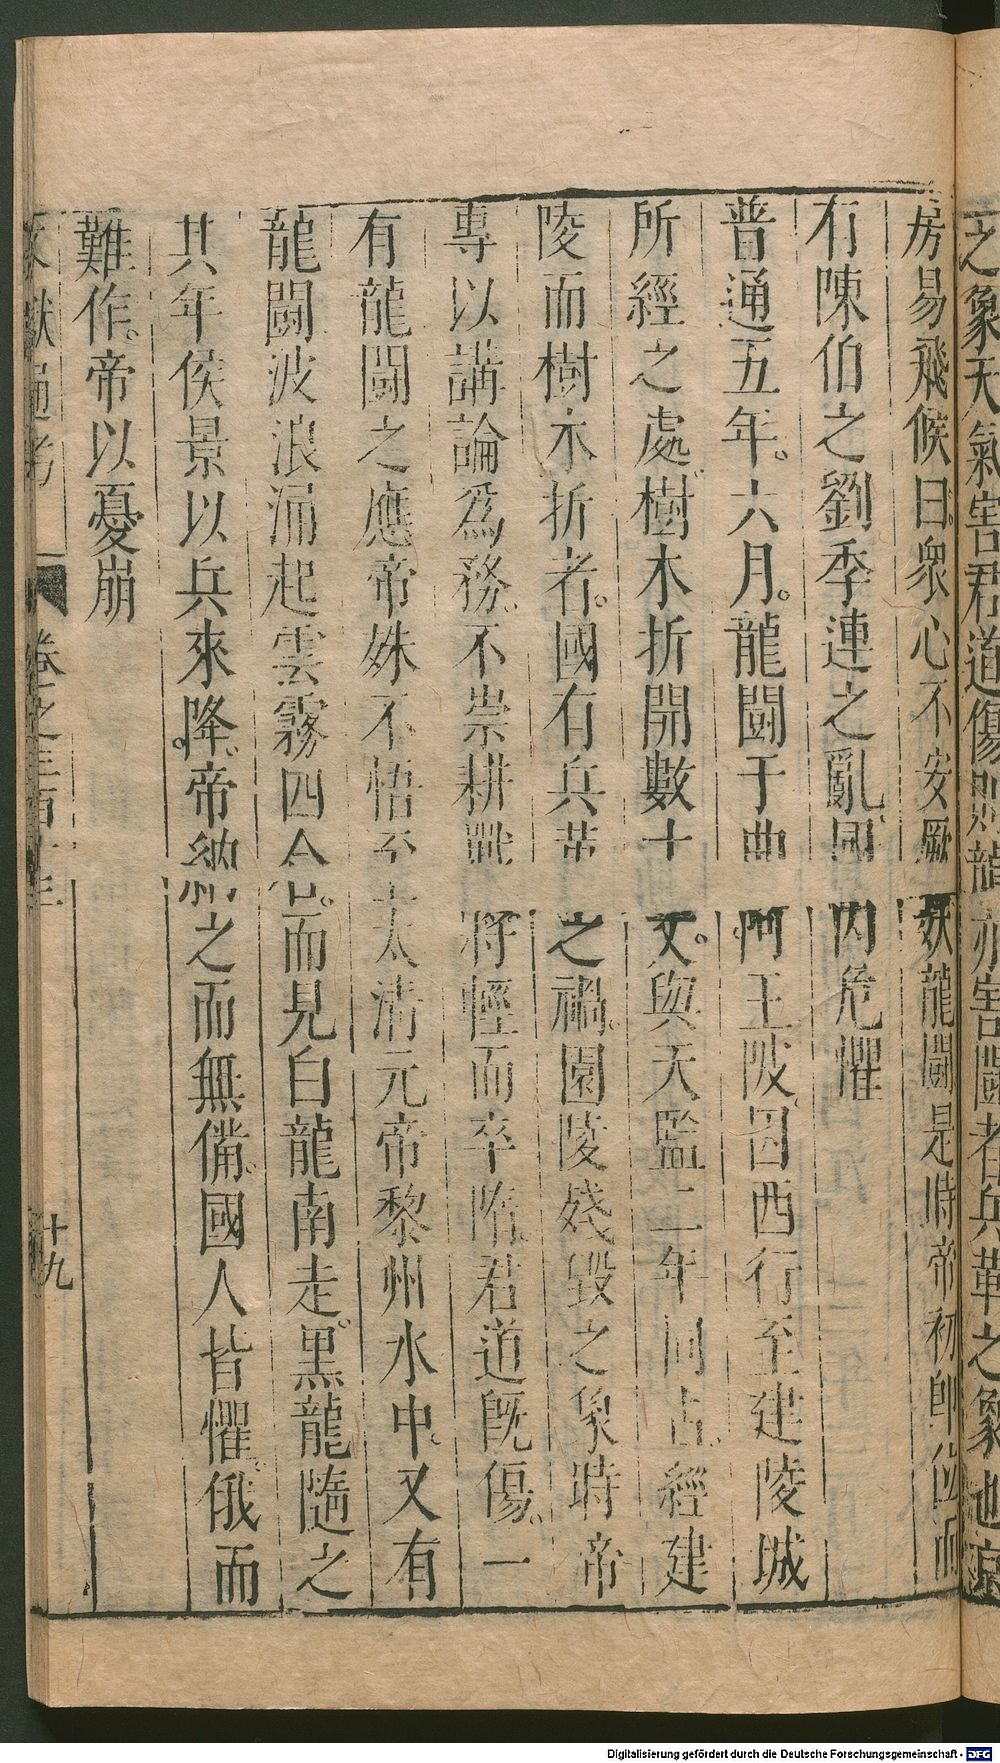 之象天氣害君道傷則龍亦害鬬者兵革之象也京
房易飛候曰衆心不安厥妖龍鬬是時帝初即位而
有陳伯之劉季連之亂國內危懼
普通五年六月龍鬬于曲阿王陂因西行至建陵城
所經之處樹木折開數十丈與天監二年同占經建
陵而樹木折者國有兵革之禍園陵殘毀之象時帝
專以講論爲務不崇耕戰將輕而卒惰君道既傷一
有龍鬬之應帝殊不悟至太清元帝黎州水中又有
龍鬬波浪涌起雲霧四合而見白龍南走黑龍隨之
其年侯景以兵來降帝納之而無備國人皆懼俄而
難作帝以憂崩
文獻通考 卷之三百十三 十九
Digitalisierung gefördert durch die Deutsche Forschungsgemeinschaft - DFG